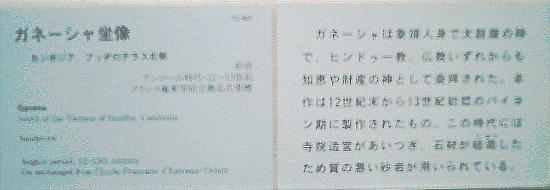 ガネーシャ坐像
カンボジア、ブッダのテラス北側
砂岩
アンコール時代・12~13世紀
フランス極東学院交換品
Ganesa
North of the Terrace of Buddha, Cambodia
Sandstone
Angkor period, 12-13th century
Exchanged from l'École Française d'Extrême-Orient
ガネーシャは象頭人身で
で、ヒンドゥー教、仏教いずれからも
知恵や財産の神として崇拝された。本
作は12世紀末から13世紀初頭のバイヨ
ン期に製作されたもの。この時代には
寺院造営があいつぎ、石材が
ため質の悪い砂岩が用いられている。